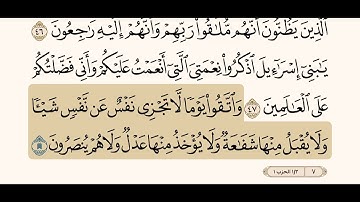 ٱلَّذِينَ يَظُنُّونَ أَنَّهُم مُّلَٰقُواْ رَبِّهِمۡ وَأَنَّهُمۡ إِلَيۡهِ رَٰجِعُونَ ٤٦
يَٰبَنِيٓ إِسۡرَٰٓءِيلَ ٱذۡكُرُواْ نِعۡمَتِيَ ٱلَّتِيٓ أَنۡعَمۡتُ عَلَيۡكُمۡ وَأَنِّي فَضَّلۡتُكُمۡ
عَلَى ٱلۡعَٰلَمِينَ ٤٧ وَٱتَّقُواْ يَوۡمٗا لَّا تَجۡزِي نَفۡسٌ عَن نَّفۡسٖ شَيۡـٔٗا
وَلَا يُقۡبَلُ مِنۡهَا شَفَٰعَةٞ وَلَا يُؤۡخَذُ مِنۡهَا عَدۡلٞ وَلَا هُمۡ يُنصَرُونَ ٤٨
٧ ١/٢ الحزب ١